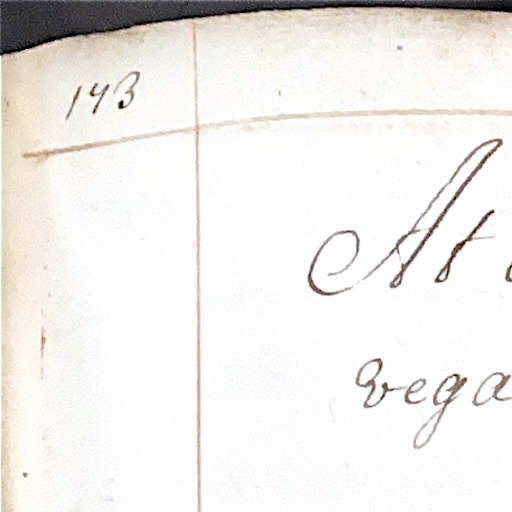 143
At
vega